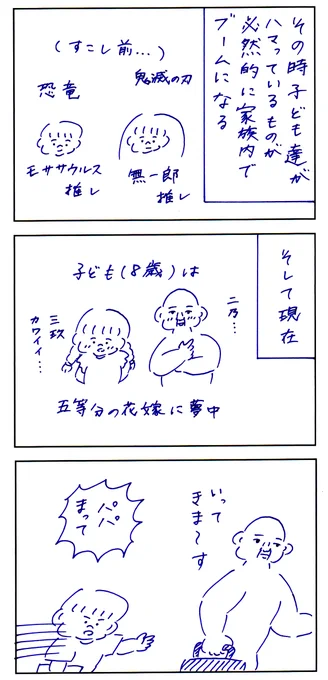 その時子ども達が
ハマっているものが
必然的に家族内で
ブームになる
(すこし前…)
鬼滅の刃
無一郎
推し
恐竜
モササウルス
推し
そして現在
子ども(8歳)は
二乃…
三玖
カワイイ…
五等分の花嫁に夢中
いって
きま〜す
パパ
まって